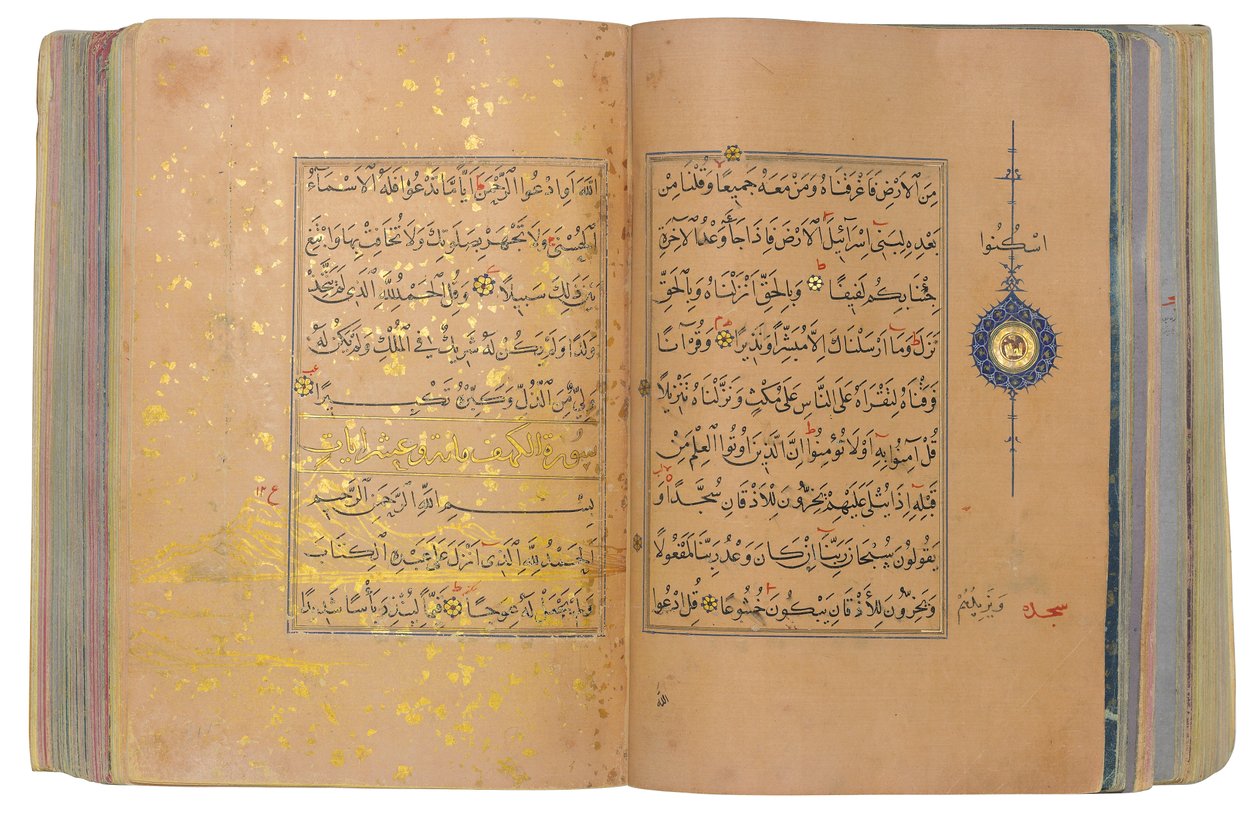 مِنَ الْاَرْضِ فَاَغْرَقْنَاهُ وَمَنْ مَعَهُ جَمِيعًا وَقُلْنَا مِنْ
بَعْدِهِ لِبَنِى اِسْرَآئِيلَ الْاَرْضَ فَاِذَا جَآءَ وَعْدُ الْآخِرَةِ
اسْكُنُوا
جِئْنَا بِكُمْ لَفِيفًا وَبِالْحَقِّ اَنْزَلْنَاهُ وَبِالْحَقِّ
نَزَلَ وَمَآ اَرْسَلْنَاكَ اِلَّا مُبَشِّرًا وَنَذِيرًا وَقُرْآنًا
فَرَقْنَاهُ لِتَقْرَاَهُ عَلَى النَّاسِ عَلَى مُكْثٍ وَنَزَّلْنَاهُ تَنْزِيلًا
قُلْ آمِنُوا بِهِٓ اَوْ لَا تُؤْمِنُوا اِنَّ الَّذِينَ اُوتُوا الْعِلْمَ مِنْ
قَبْلِهِٓ اِذَا يُتْلَى عَلَيْهِمْ يَخِرُّونَ لِلْاَذْقَانِ سُجَّدًا وَ
يَقُولُونَ سُبْحَانَ رَبِّنَآ اِنْ كَانَ وَعْدُ رَبِّنَا لَمَفْعُولًا
وَيَخِرُّونَ لِلْاَذْقَانِ يَبْكُونَ خُشُوعًا قُلِ ادْعُوا
وَيَزِيدُهُمْ
سجده
الله
اللّٰهَ اَوِ ادْعُوا الرَّحْمٰنَ اَيًّا مَا تَدْعُوا فَلَهُ الْاَسْمَآءُ
الْحُسْنَى وَلَا تَجْهَرْ بِصَلٰوتِكَ وَلَا تُخَافِتْ بِهَا وَابْتَغِ
بَيْنَ ذٰلِكَ سَبِيلًا وَقُلِ الْحَمْدُ لِلّٰهِ الَّذِى لَمْ يَتَّخِذْ
وَلَدًا وَلَمْ يَكُنْ لَهُ شَرِيكٌ فِى الْمُلْكِ وَلَمْ يَكُنْ لَهُ
وَلِىٌّ مِنَ الذُّلِّ وَكَبِّرْهُ تَكْبِيرًا
سورة الكهف مائة وعشر ايات
بِسْمِ اللّٰهِ الرَّحْمٰنِ الرَّحِيمِ
ع ١٢
اَلْحَمْدُ لِلّٰهِ الَّذِىٓ اَنْزَلَ عَلَى عَبْدِهِ الْكِتَابَ
وَلَمْ يَجْعَلْ لَهُ عِوَجًا قَيِّمًا لِيُنْذِرَ بَأْسًا شَدِيدًا